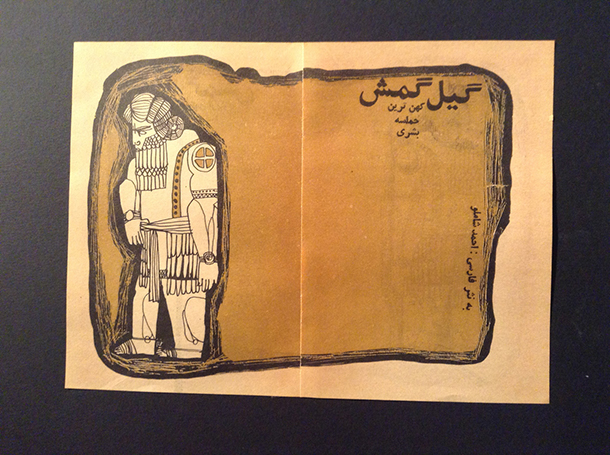 گیل گمش
کهن ترین
حماسه
بشری
به نثر فارسی : احمد شاملو